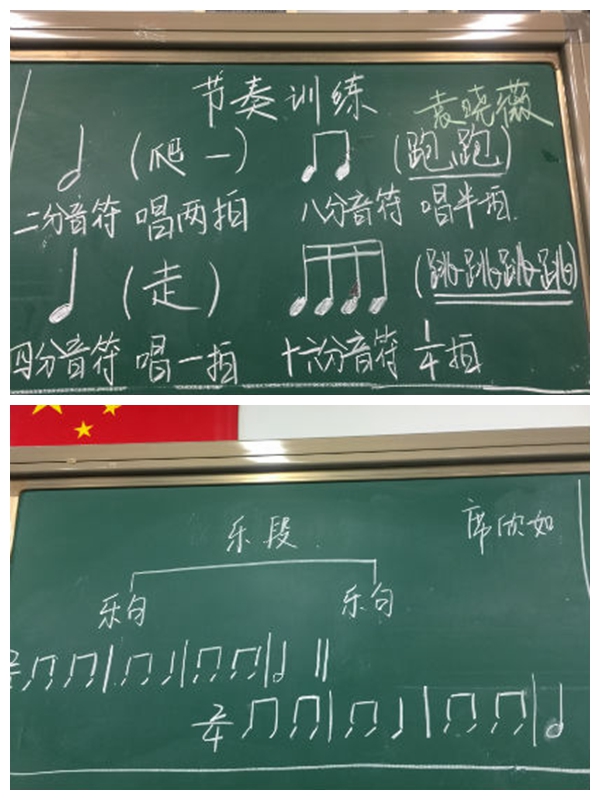 节奏训练 袁晓薇
(爬 一) (跑跑)
二分音符 唱两拍 八分音符 唱半拍
(走) (跳跳跳跳)
四分音符 唱一拍 十六分音符 1/4拍
乐段 席欣如
乐句 乐句
2/4
2/4